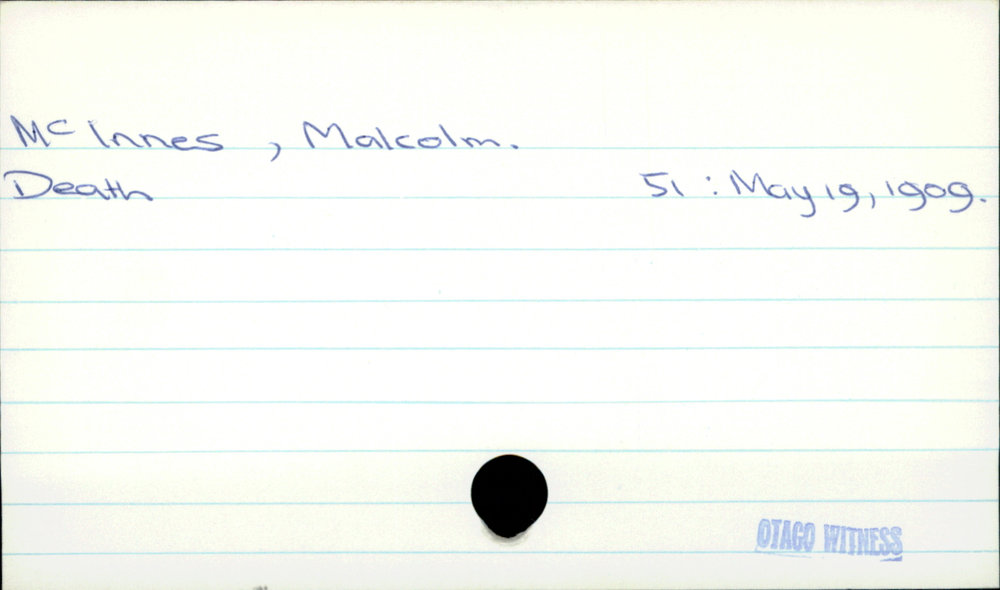 Mc Innes , Malcolm.
Death 51 : May 19, 1909.
OTAGO WITNESS